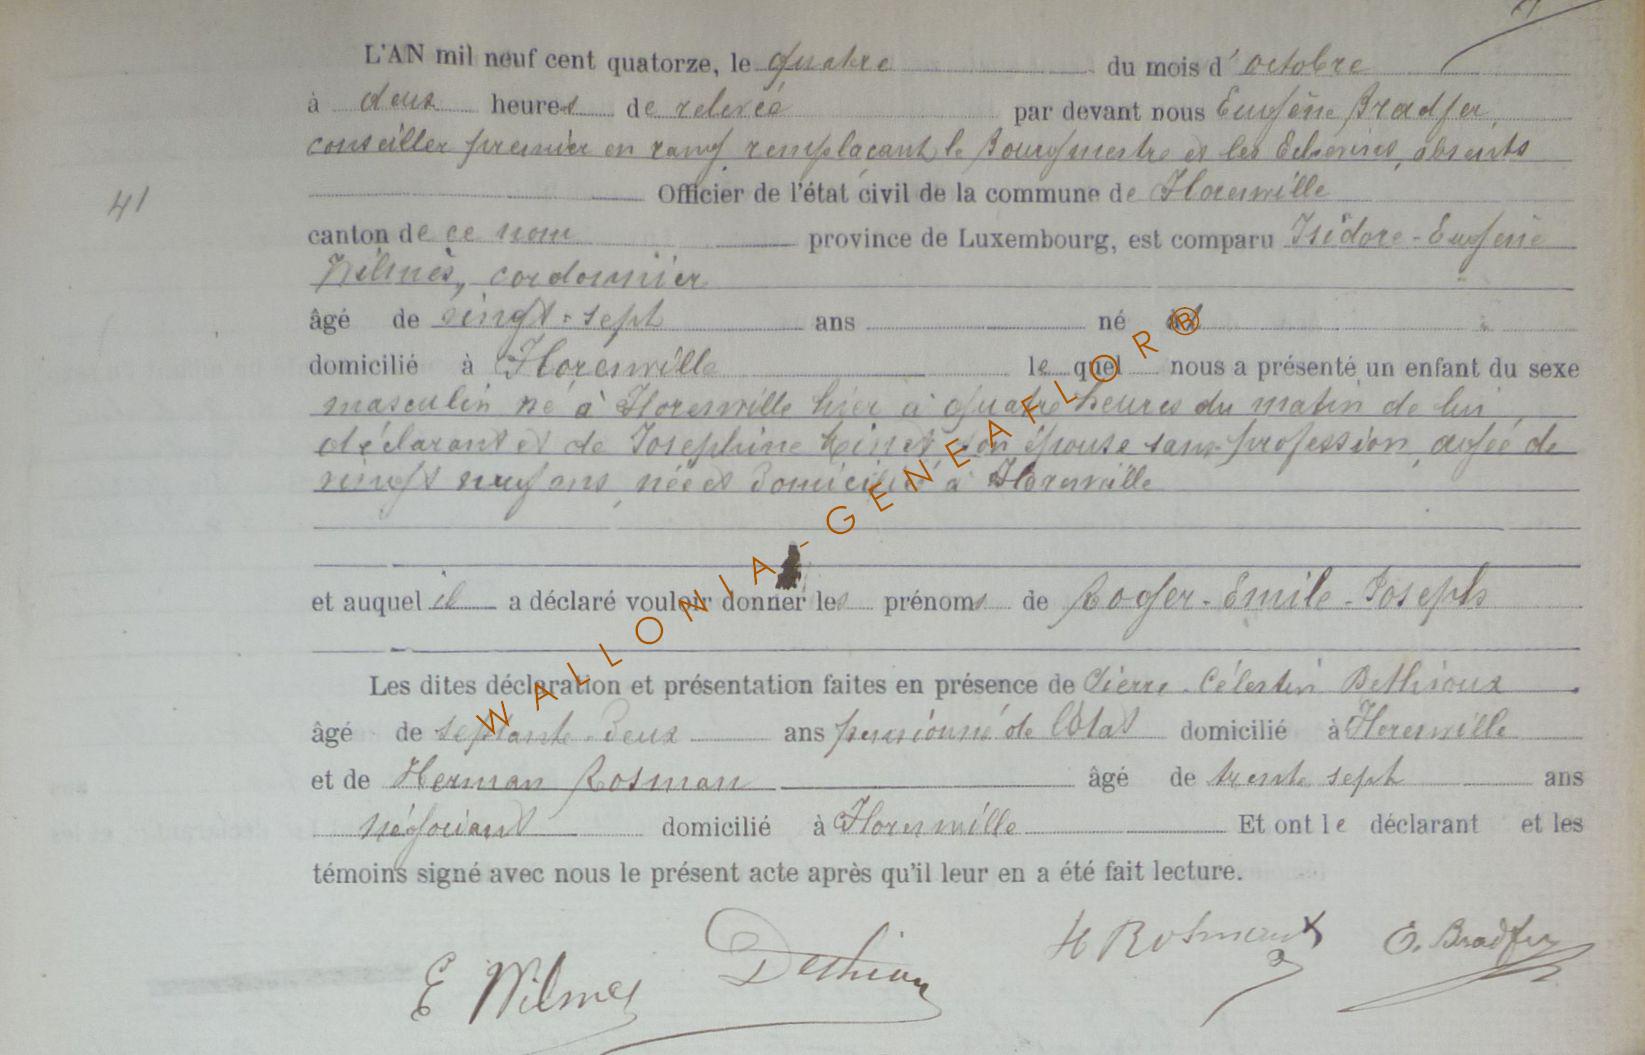 L'AN mil neuf cent quatorze, le quatre du mois d'octobre
à deux heures de relevée par devant nous Eugène Bradfer,
conseiller premier en rang remplaçant le Bourgmestre et les Echevins, absents
Officier de l'état civil de la commune de Florenville
41
canton de ce nom province de Luxembourg, est comparu Isidore-Eugène
Wilmès, cordonnier
âgé de vingt-sept ans né
domicilié à Florenville lequel nous a présenté un enfant du sexe
masculin né à Florenville hier à quatre heures du matin de lui
déclarant et de Josephine son épouse sans profession, agée de
vingt neuf ans, née et domiciliée à Florenville
et auquel il a déclaré vouloir donner les prénoms de Roger-Emile-Joseph
Les dites déclaration et présentation faites en présence de Pierre-Célestin Dethioux
âgé de septante-deux ans pensionné de l'Etat domicilié à Florenville
et de Herman Rosman âgé de trente sept ans
négociant domicilié à Florenville Et ont le déclarant et les
témoins signé avec nous le présent acte après qu'il leur en a été fait lecture.
E Wilmes Dethioux H Rosman E. Bradfer
WALLONIA-GENEAFLOR®